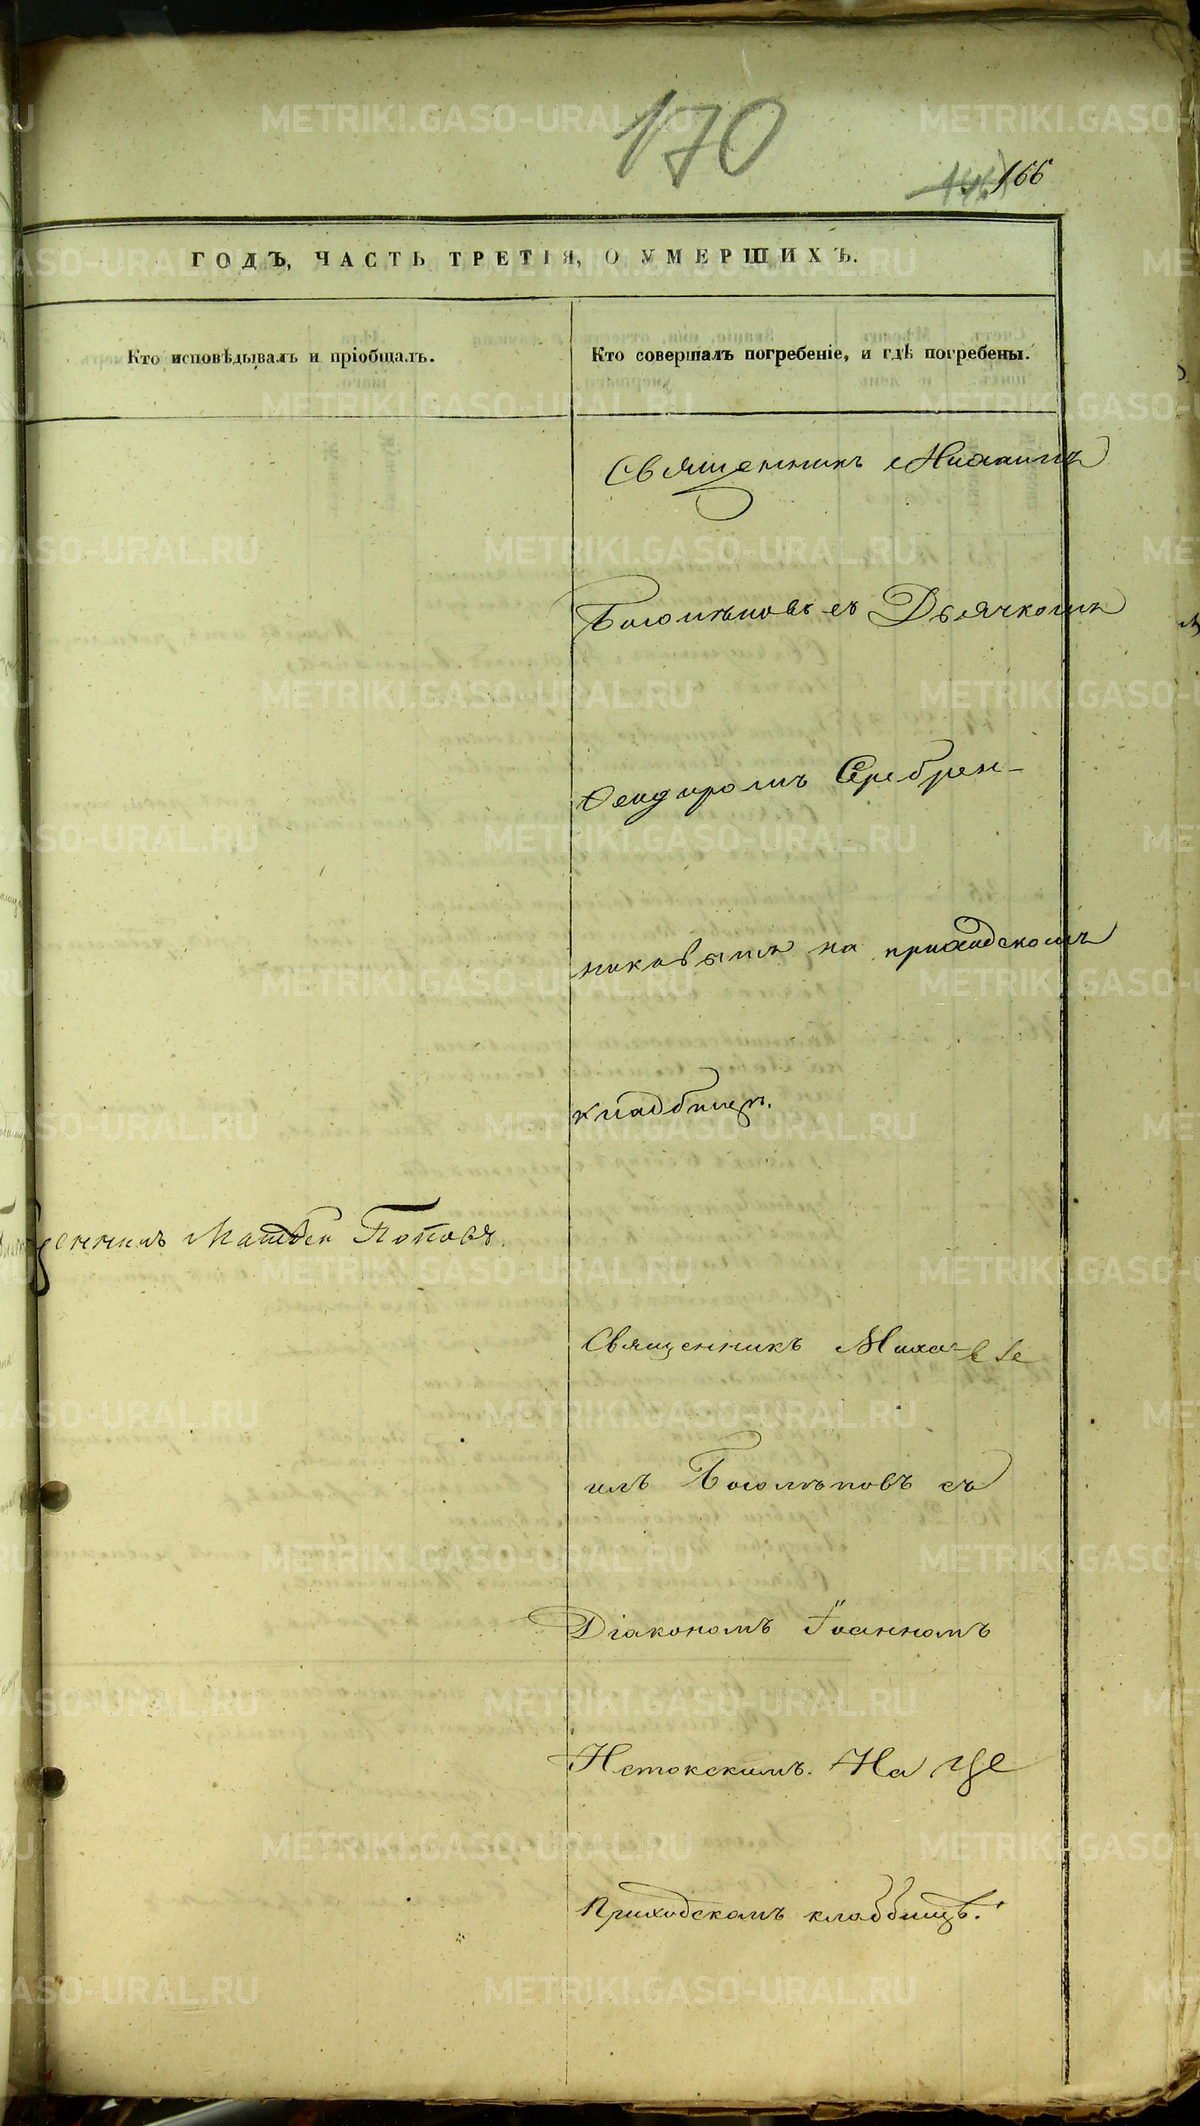 170
166
ГОДЪ, ЧАСТЬ ТРЕТІЯ, О УМЕРШИХЪ.
Кто исповѣдывалъ и пріобщалъ.
Кто совершалъ погребеніе, и гдѣ погребены.
Священникъ Михаилъ
Боголѣповъ съ Дьячкомъ
Серебрен-
никовымъ на приходскомъ
кладбищѣ.
щенникъ Матвѣй Поповъ.
Священникъ Миха-
илъ Боголѣповъ съ
Діакономъ Іоанномъ
Истокскимъ. На
Приходскомъ кладбищѣ.
METRIKI.GASO-URAL.RU